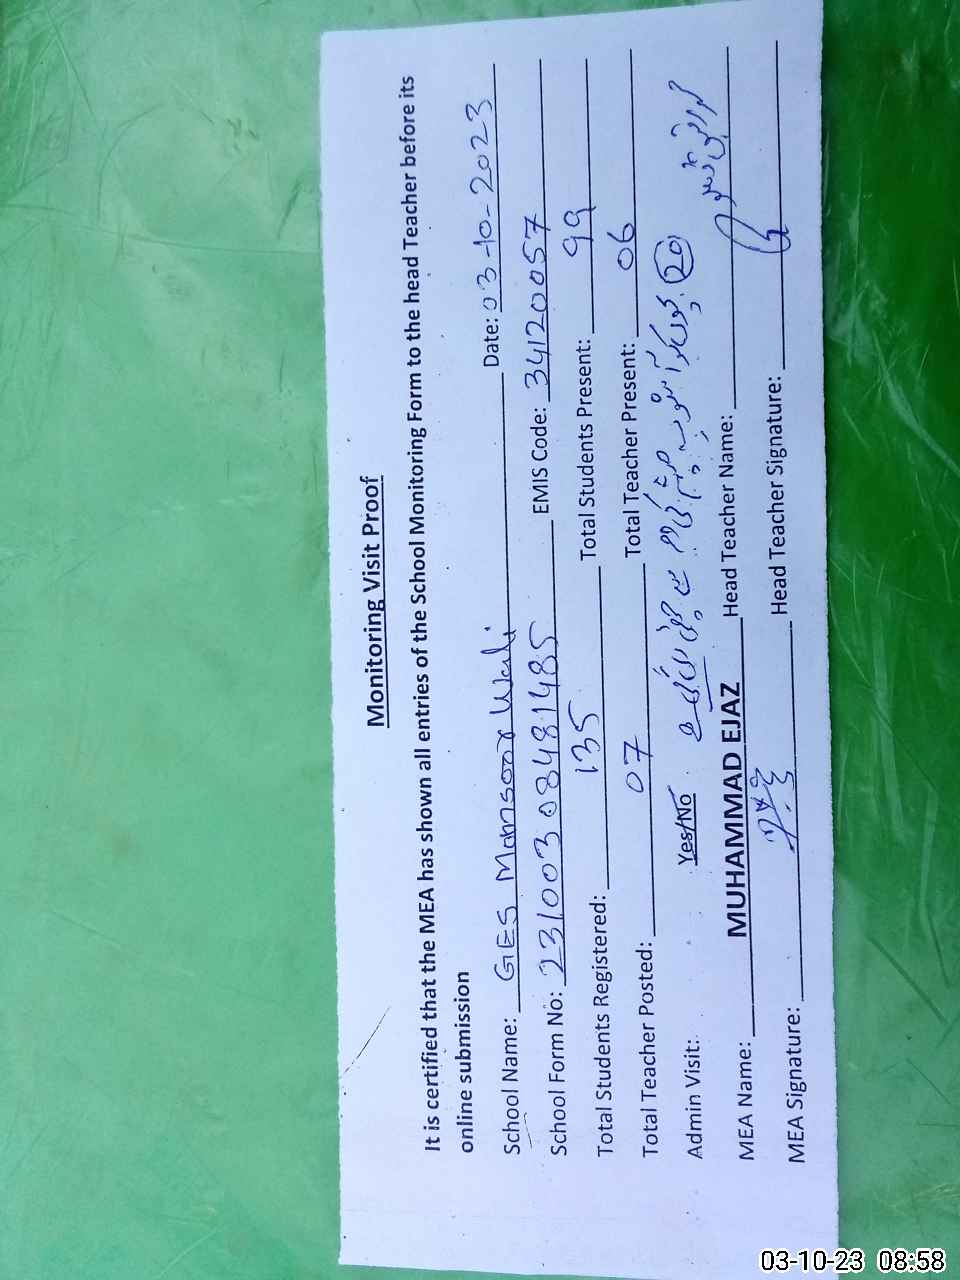 Monitoring Visit Proof
It is certified that the MEA has shown all entries of the School Monitoring Form to the head Teacher before its
online submission
School Name: GES Mansoor Wali Date: 03-10-2023
School Form No: 231003 08481485 EMIS Code: 34120057
Total Students Registered: 135 Total Students Present: 99
Total Teacher Posted: 07 Total Teacher Present: 06
Admin Visit: Yes/No 20
MEA Name: MUHAMMAD EJAZ Head Teacher Name:
MEA Signature: Head Teacher Signature:
03-10-23 08:58